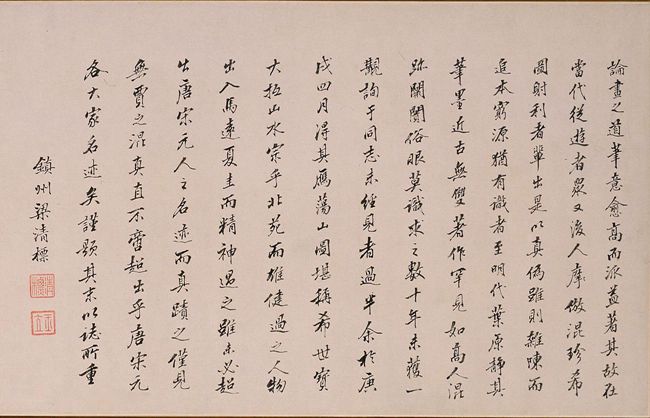 論畫之道筆意愈高而派益著其故在
當代從遊者眾又後人摩倣混珍希
圖射利者輩出是以真偽雖則雜陳而
追本窮源猶有識者至明代葉原靜其
筆墨近古無雙著作罕見如高人混
跡闤闠俗眼莫識求之數十年未獲一
觀詢于同志未經見者過半余於庚
戌四月得其鴈蕩山圖堪稱希世寶
大抵山水宗乎北苑而雄健過之人物
出入馬遠夏圭而精神過之雖未必超
出唐宋元人之名迹而真蹟之僅見
無賈之混真直不啻超出乎唐宋元
各大家名迹矣謹題其末以誌所重
鎮州梁清標